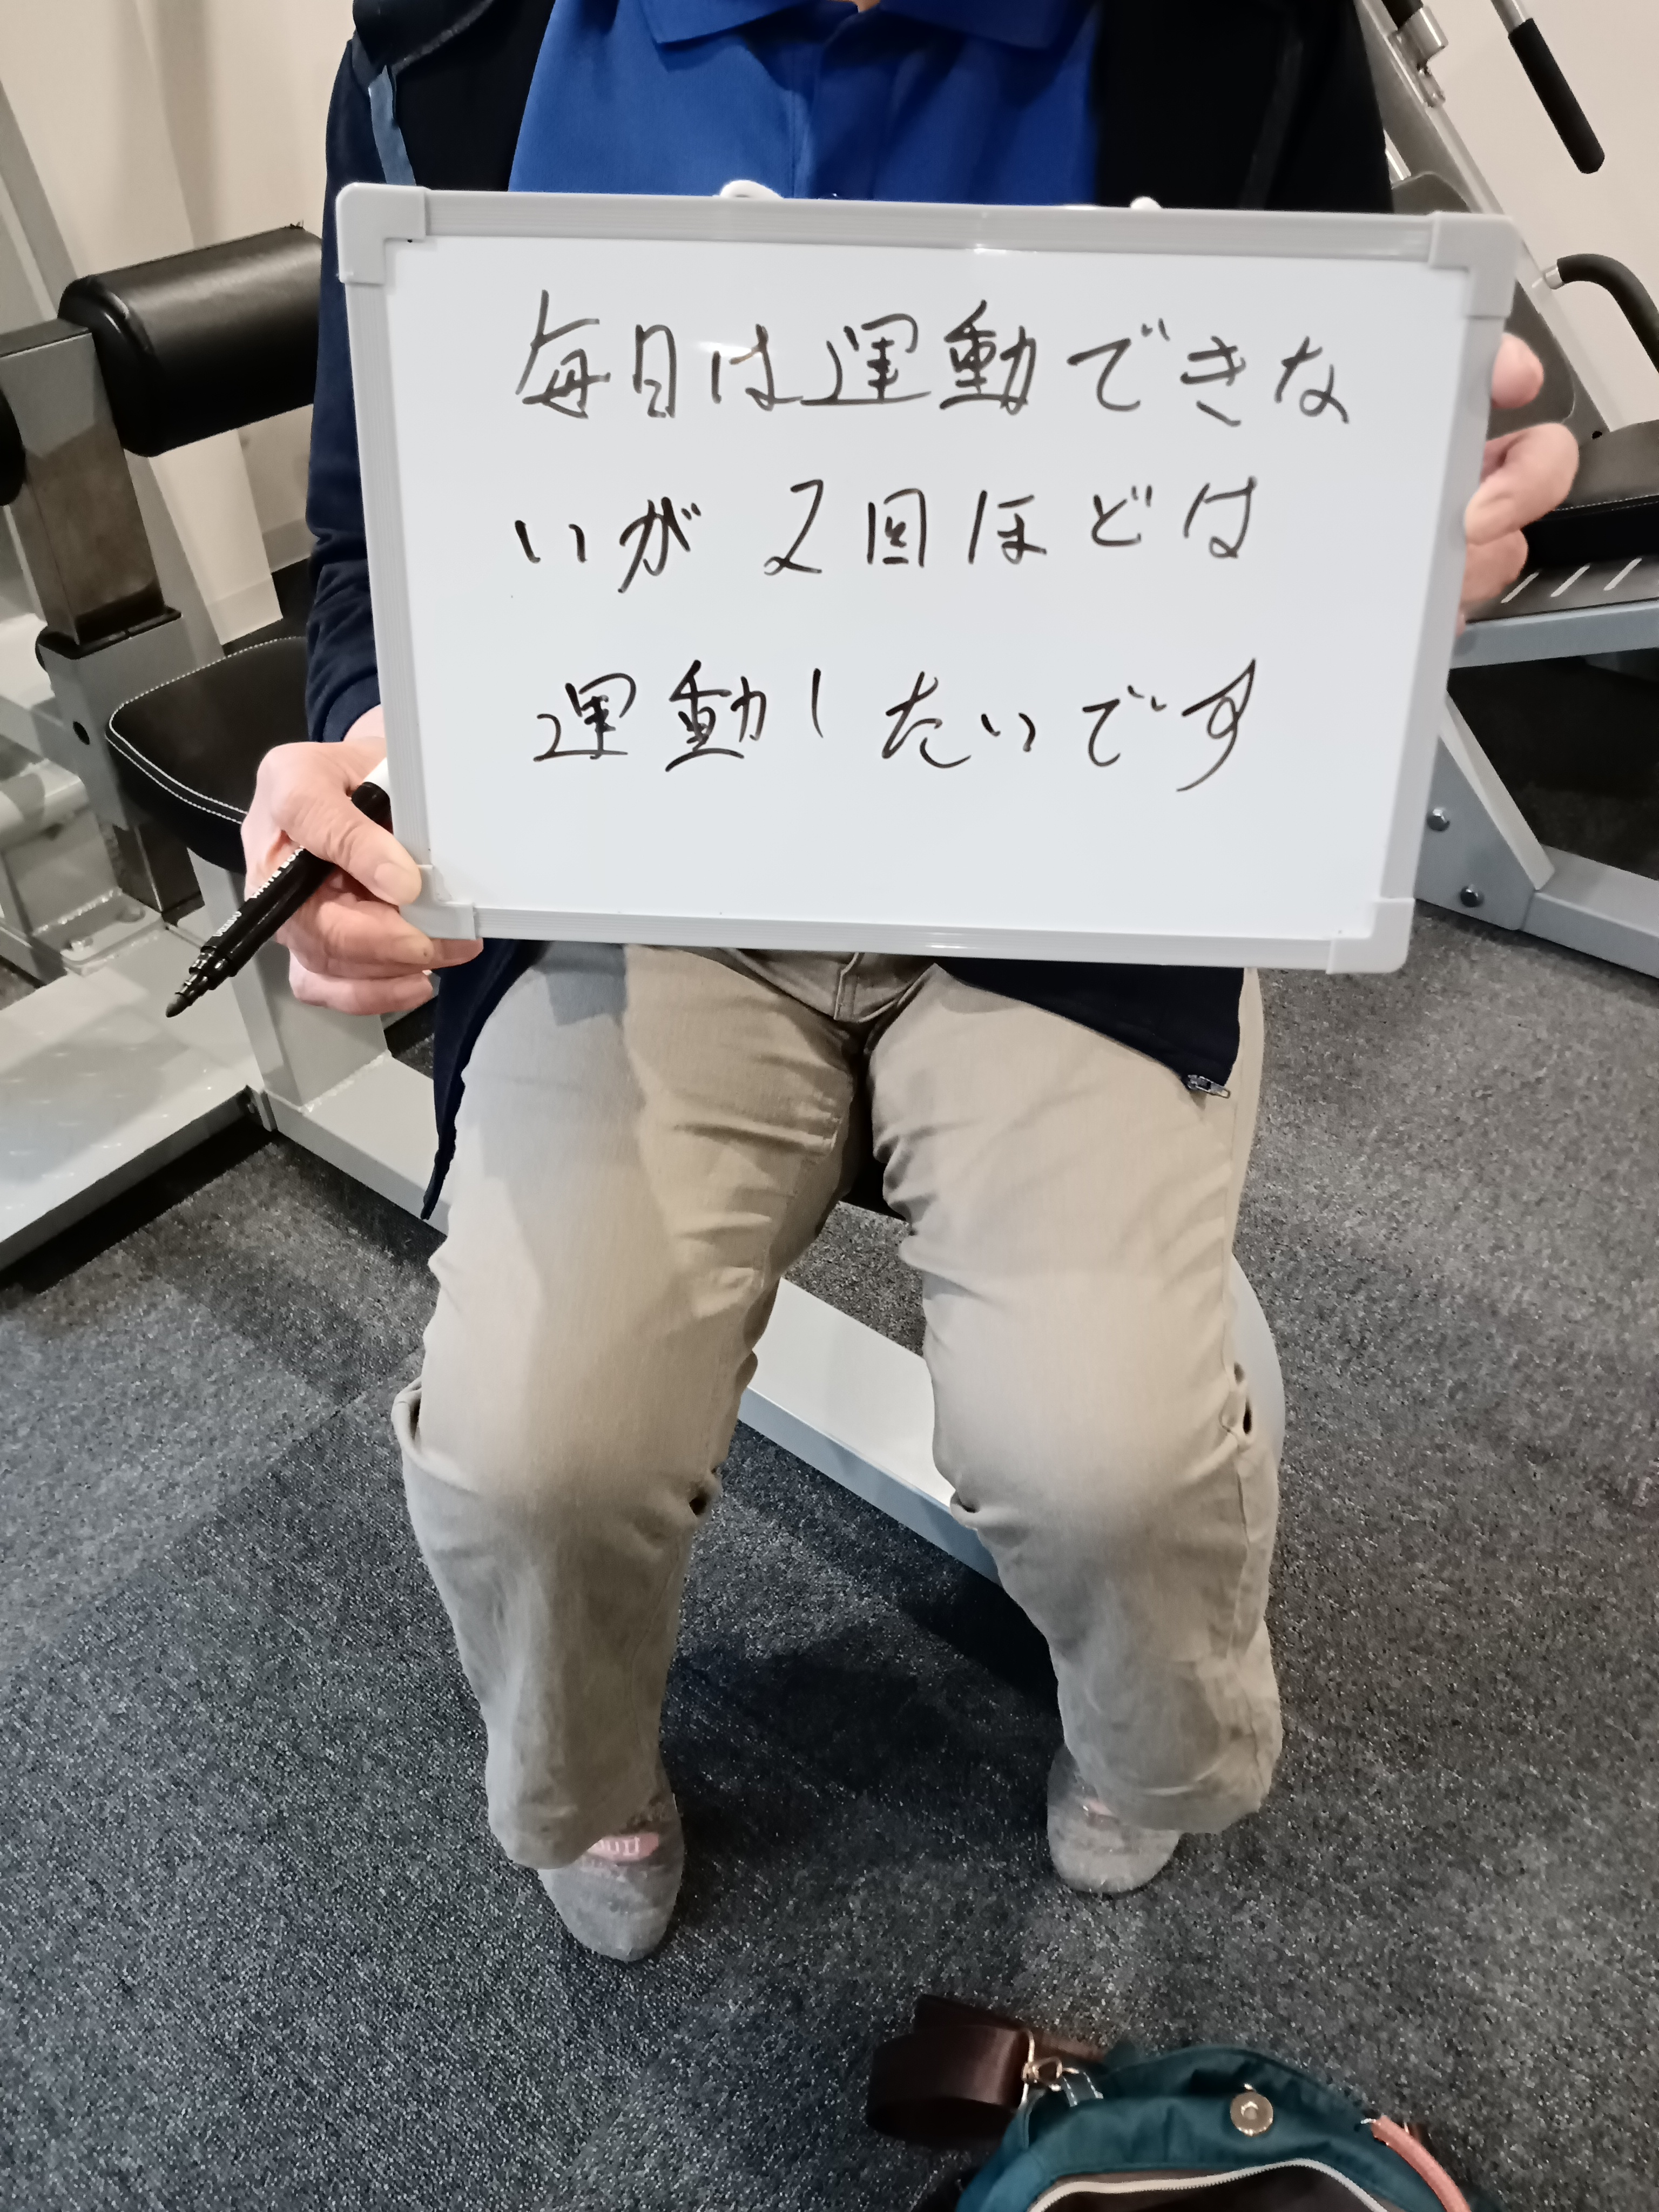 毎日は運動できな
いが2回ほどは
運動したいです